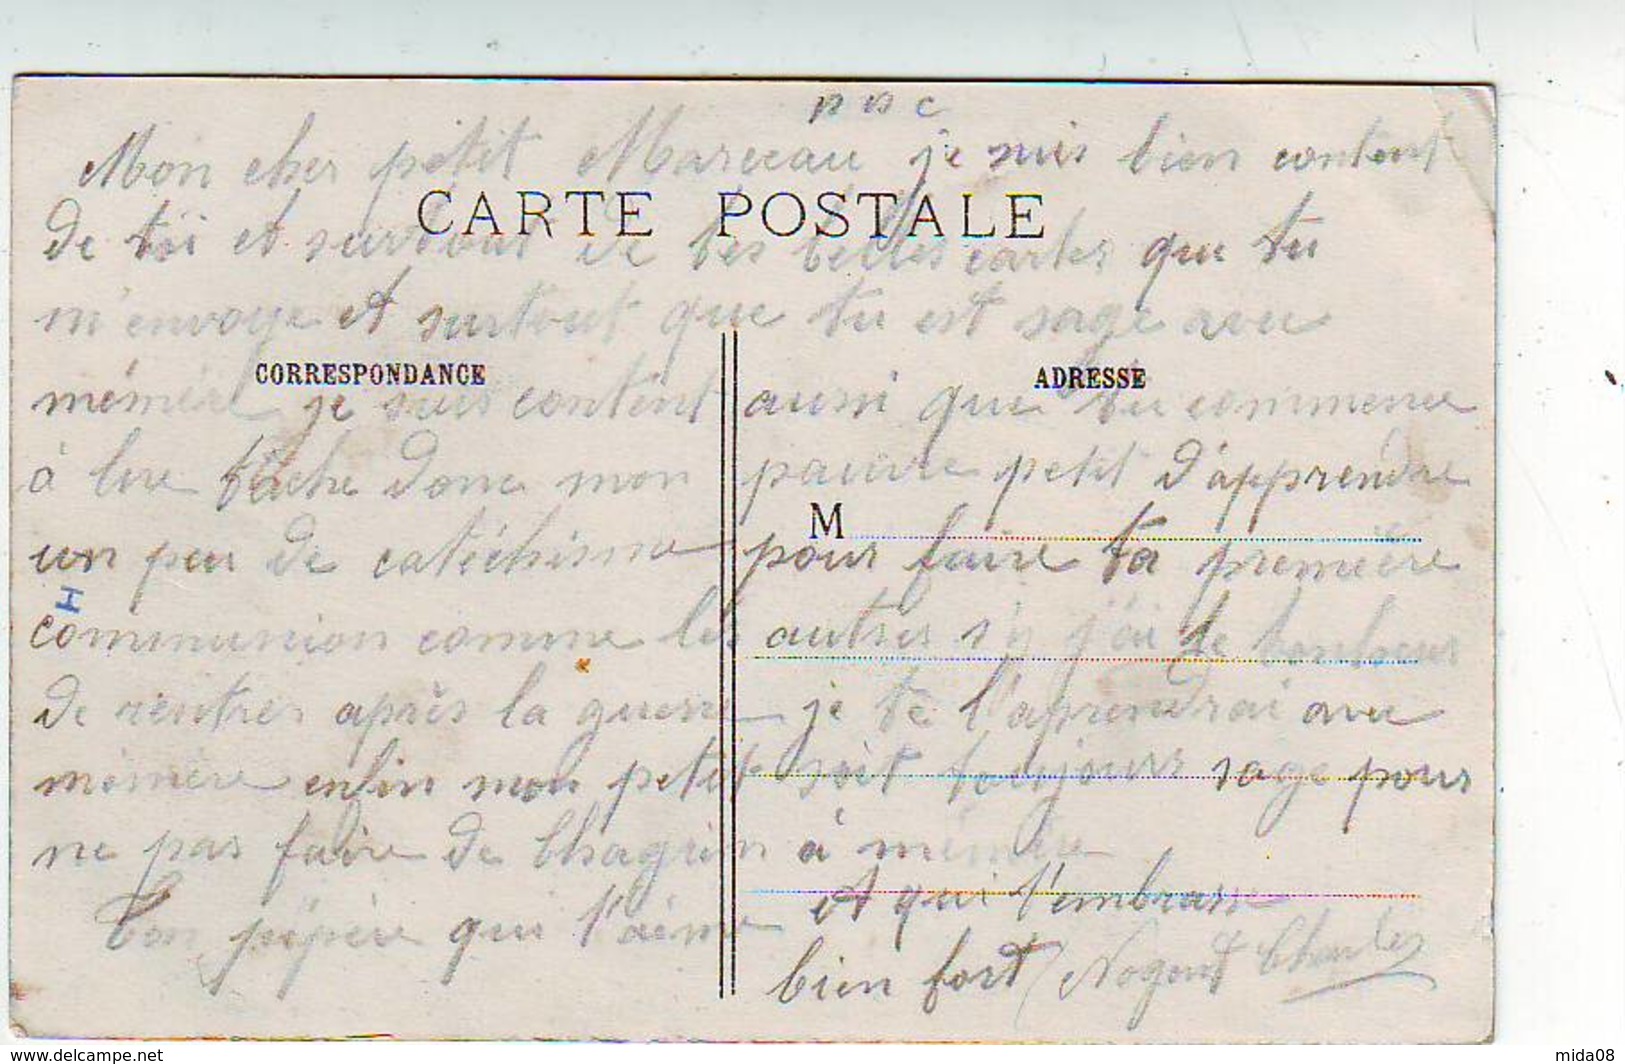 p p c
Mon cher petit Marceau je suis bien content
CARTE POSTALE
de toi et surtout de tes belles cartes que tu
m'envoye et surtout que tu est sage avec
CORRESPONDANCE
ADRESSE
mémère je suis content aussi que tu commence
à lire tâche donc mon pauvre petit d'apprendre
M
un peu de catéchisme pour faire ta première
I
communion comme les autres s'y j'ai le bonheur
de rentrer après la guerre je te l'aprendrai avec
mémère enfin mon petit soit toujours sage pour
ne pas faire de chagrin à mémère
Ton pépère qui t'aime et qui t'embrasse
bien fort Nogent Charles
mida08
www.delcampe.net